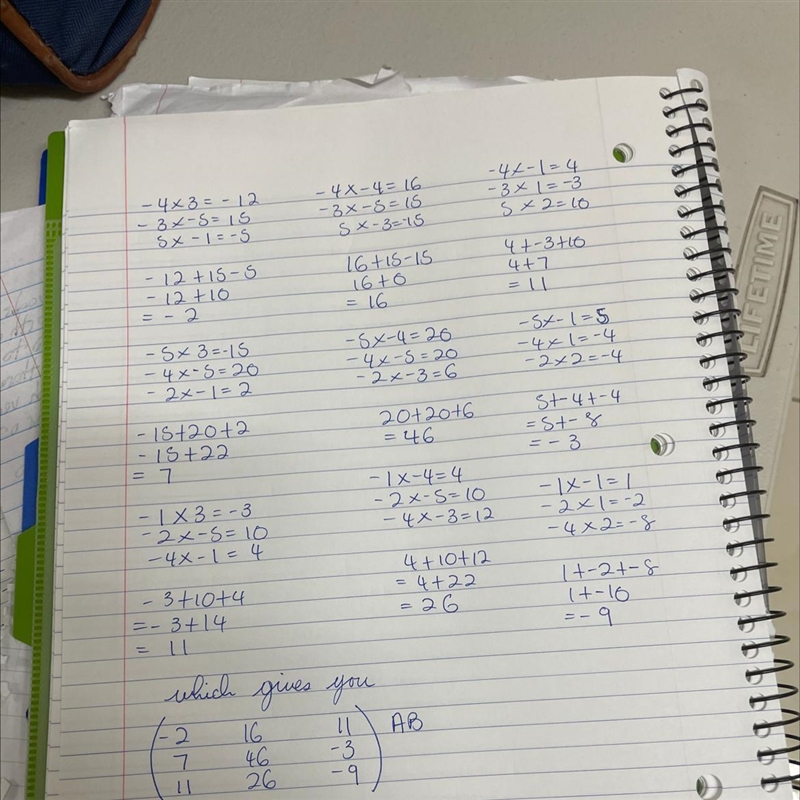 -4×3=-12
-3×-5=15
5×-1=-5
-4×-4=16
-3×-5=15
5×-3=-15
-4×-1=4
-3×1=-3
5×2=10
-12+15-5
-12+10
=-2
16+15-15
16+0
=16
4+-3+10
4+7
=11
-5×3=-15
-4×-5=20
-2×-1=2
-5×-4=20
-4×-5=20
-2×-3=6
-5×-1=5
-4×1=-4
-2×2=-4
-15+20+2
-15+22
=7
20+20+6
=46
5+-4+-4
=5+-8
=-3
-1×3=-3
-2×-5=10
-4×-1=4
-1×-4=4
-2×-5=10
-4×-3=12
-1×-1=1
-2×1=-2
-4×2=-8
-3+10+4
=-3+14
=11
4+10+12
=4+22
=26
1+-2+-8
1+-10
=-9
which gives you
-2 16 11 AB
7 46 -3
11 26 -9
LIFETIME